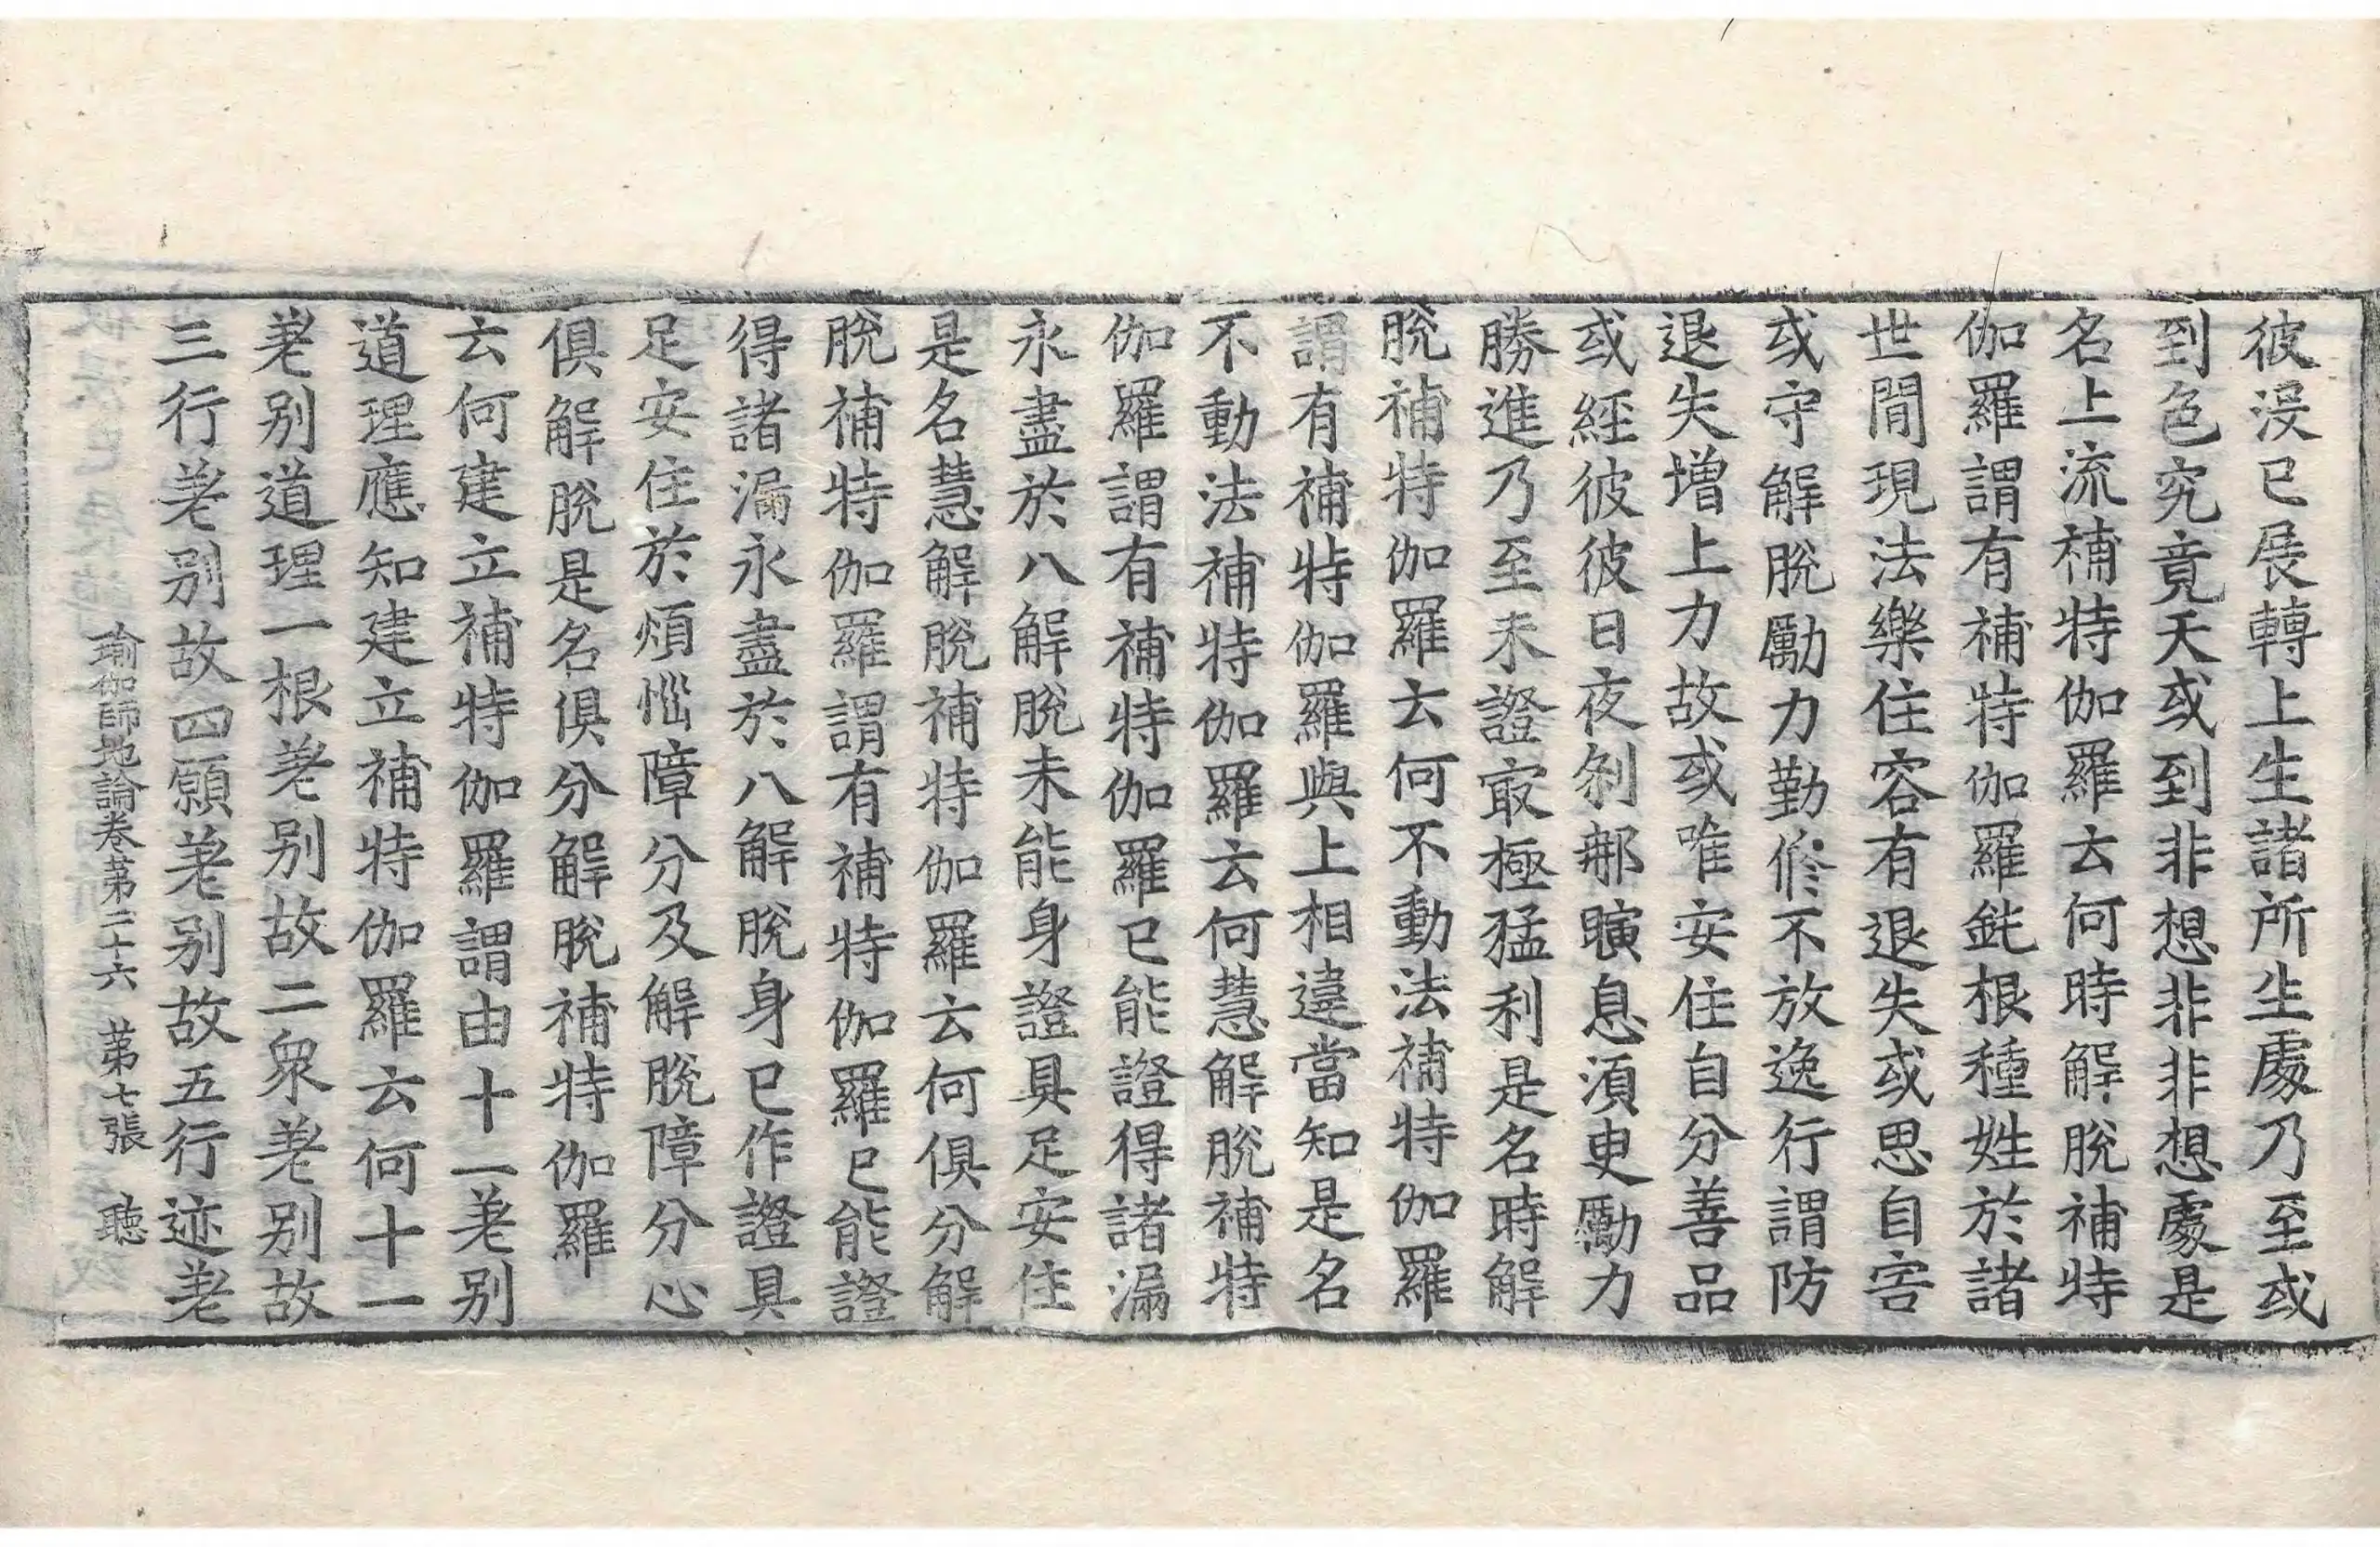 彼沒已展轉上生諸所生處乃至或
到色究竟天或到非想非非想處是
名上流補特伽羅云何時解脫補特
伽羅謂有補特伽羅鈍根種姓於諸
世間現法樂住容有退失或思自害
或守解脫勵力勤修不放逸行謂防
退失增上力故或唯安住自分善品
或經彼彼日夜剎那瞚息須臾勵力
勝進乃至未證㝡極猛利是名時解
脫補特伽羅云何不動法補特伽羅
謂有補特伽羅與上相違當知是名
不動法補特伽羅云何慧解脫補特
伽羅謂有補特伽羅已能證得諸漏
永盡於八解脫未能身證具足安住
是名慧解脫補特伽羅云何俱分解
脫補特伽羅謂有補特伽羅已能證
得諸漏永盡於八解脫身已作證具
足安住於煩惱障分及解脫障分心
俱解脫是名俱分解脫補特伽羅
云何建立補特伽羅謂由十一差别
道理應知建立補特伽羅云何十一
差别道理一根差别故二衆差别故
三行差别故四願差别故五行迹差
瑜伽師地論卷苐二十六 苐七張 聽